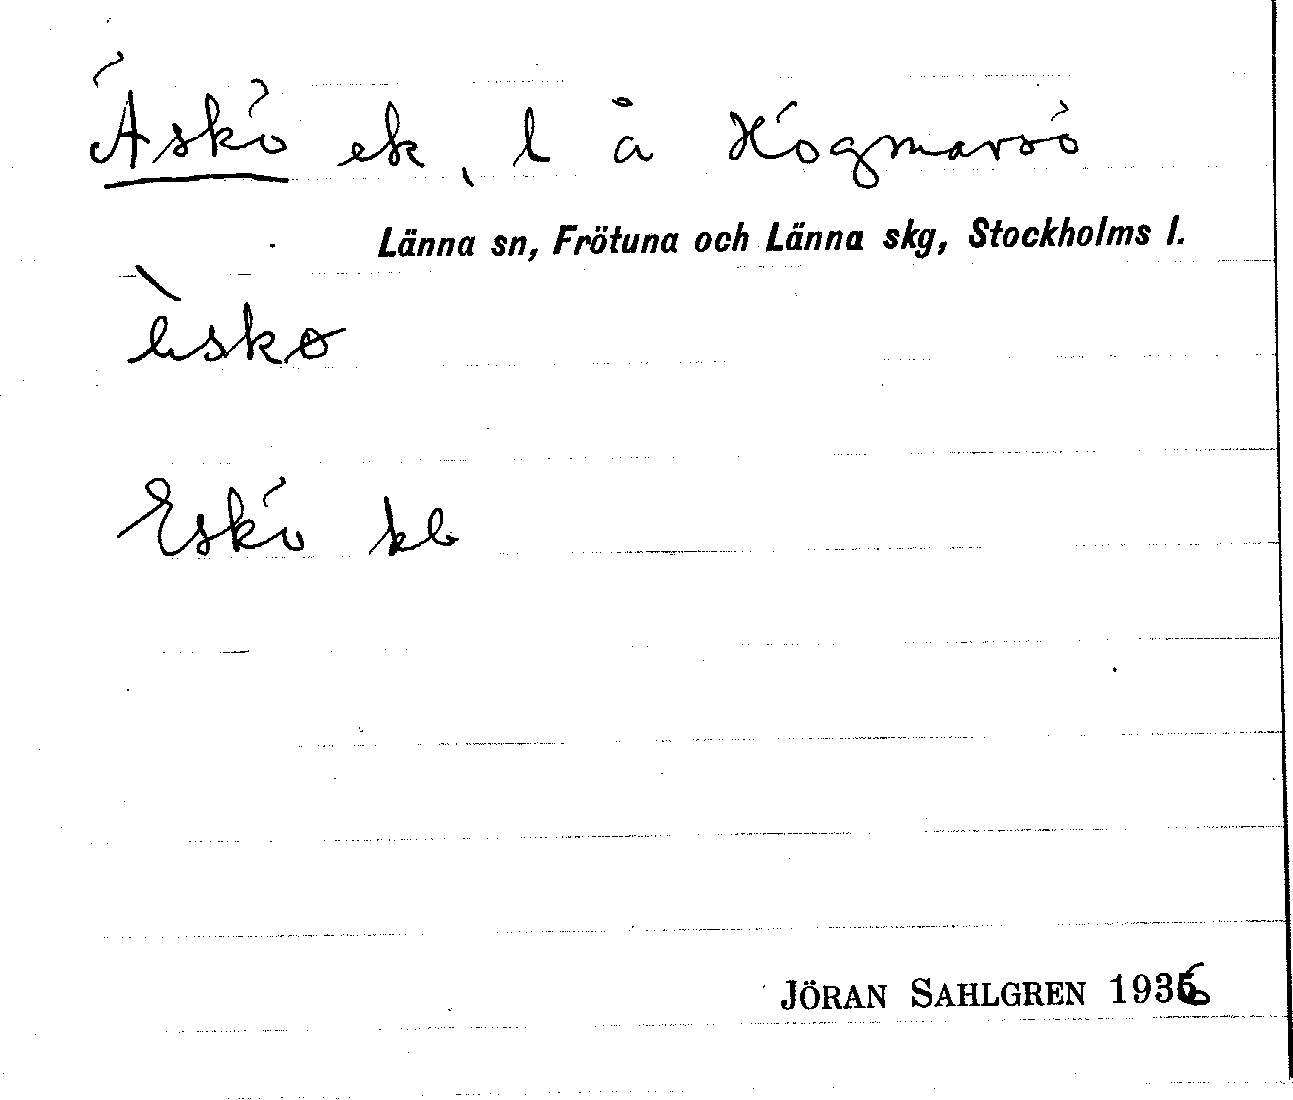 Äskö ek, l å Högmarsö
Länna sn, Frötuna och Länna skg, Stockholms l.
Eskö kb
JÖRAN SAHLGREN 1936